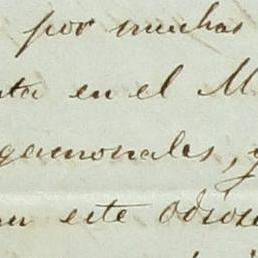 por muchas
en el M
gamonales, y
en este odios